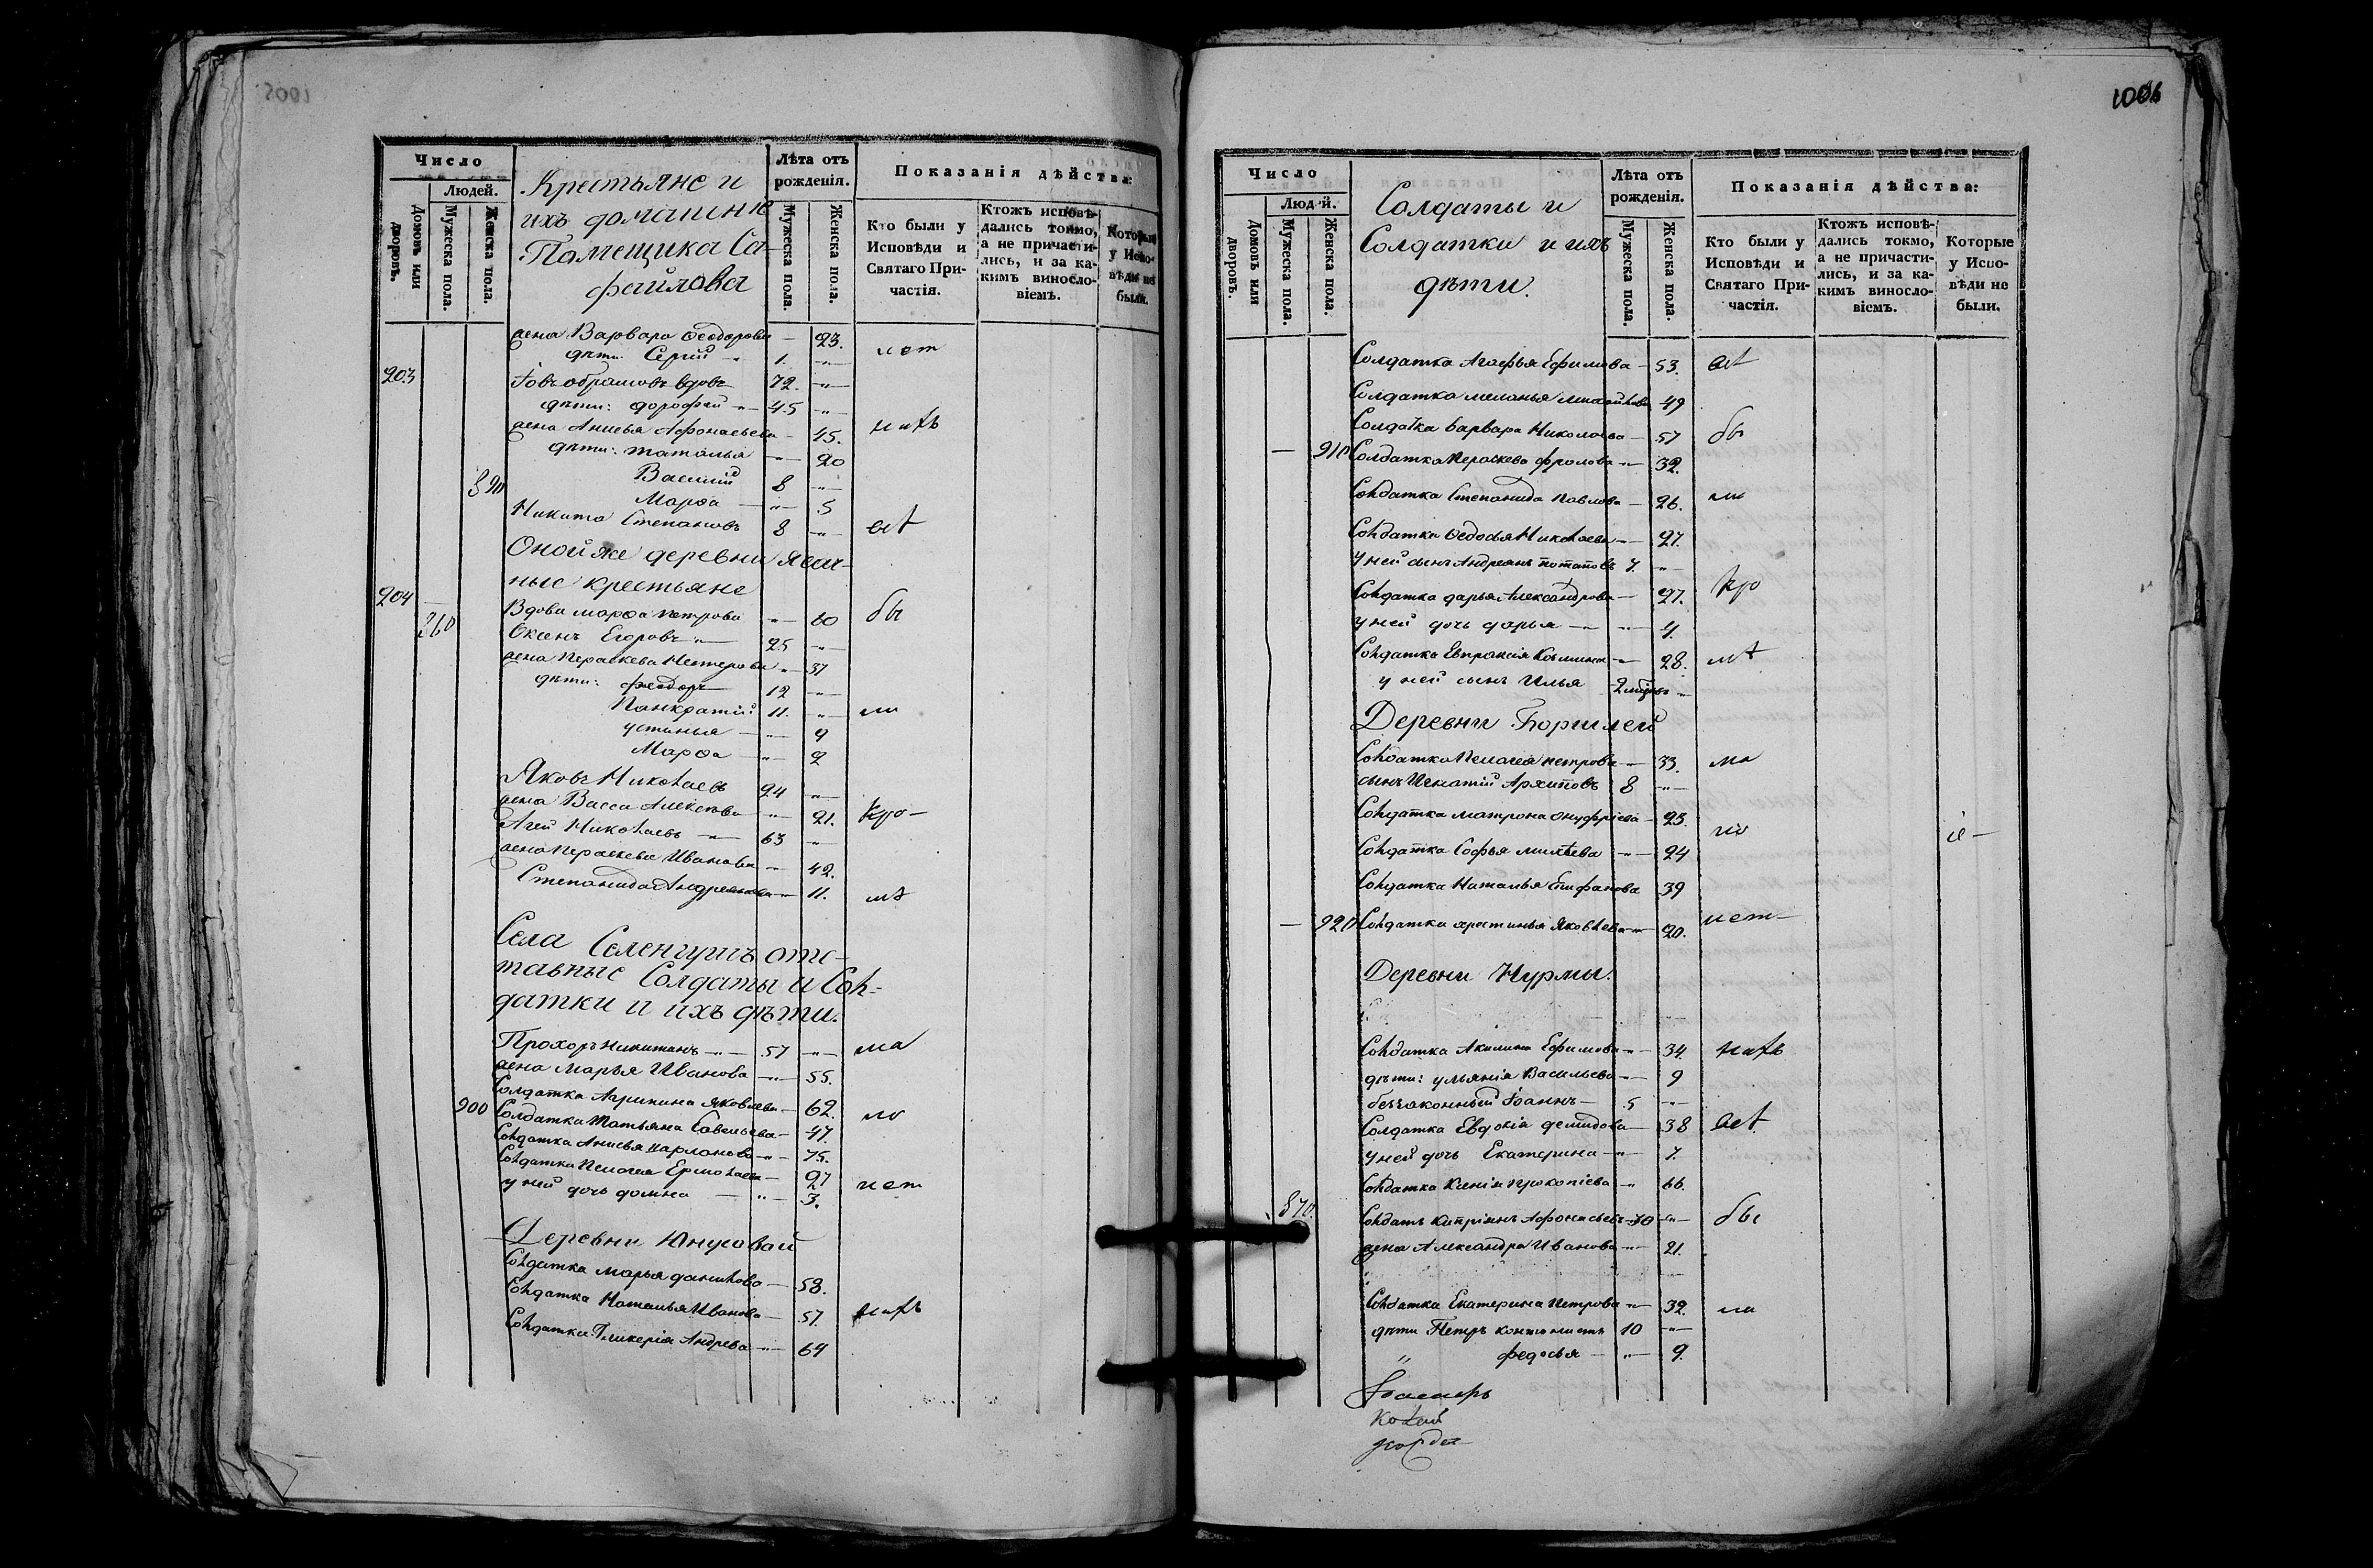 Число
Людей.
Домовъ или дворовъ.
Мужеска пола.
Женска пола.
Крестьяне и
ихъ домашніе
Помещика Са-
файлова
Лѣта отъ рожденія.
Мужеска пола.
Женска пола.
Показанія дѣйства:
Кто были у Исповѣди и Святаго Причастія.
Ктожъ исповѣдались токмо, а не причастились, и за какимъ винословіемъ.
Которые у Исповѣди не были.
жена Варвара Ѳеодорова — 23.
дѣти: Сергій 1. —
203 Іовъ вдовъ 72. —
дѣти: дорофей 45 —
жена Анисья Афонасьева — 45.
дѣти: наталья — 20
890 Василій 8 —
Марѳа — 5
Никита Степановъ 8 —
Оной же деревни ясач-
ные крестьяне
204 Вдова марѳа петрова — 60 бы
360 Егоровъ 25 —
жена Параскева Нестерова — 37
дѣти: феодоръ 12 —
Панкратій 11. — ли
устинья — 9
Марѳа — 2
Яковъ Николаевъ 24 —
жена Васса Алексѣева — 21. кро-
Агей Николаевъ 63 —
жена Параскева Иванова — 42.
Степанида Андреянова — 11. мѣ
Села Селенгушъ отс-
тавные Солдаты и Сол-
датки и ихъ дѣти.
Прохоръ Никитинъ 57 — ма
жена Марья Иванова — 55.
Солдатка Агрипина Яковлева — 62.
900 Солдатка Татьяна Савельева — 47.
Солдатка Анисья Харланова — 75.
Солдатка Пелагея Ермолаева — 27
у ней дочь домна — 3.
Деревни Юнусовой
Солдатка марья данилова — 58.
Солдатка Наталья Иванова — 57
Солдатка Гликерія Андрева — 64
1006
Число
Людей.
Домовъ или дворовъ.
Мужеска пола.
Женска пола.
Солдаты и
Солдатки и ихъ
дѣти.
Лѣта отъ рожденія.
Мужеска пола.
Женска пола.
Показанія дѣйства:
Кто были у Исповѣди и Святаго Причастія.
Ктожъ исповѣдались токмо, а не причастились, и за какимъ винословіемъ.
Которые у Исповѣди не были.
Солдатка Агафья Ефимова — 53.
Солдатка меланья — 49
Солдатка варвара Николаева — 57 бы
— 910 Солдатка Параскева фролова — 32.
Солдатка Степанида Павлова — 26. ли
Солдатка Ѳедосья Николаева — 27.
у ней сынъ Андреянъ потаповъ 7. —
Солдатка дарья Александрова — 27. кро
у ней дочь дарья — 4.
Солдатка Евпраксія Козмина — 28. мѣ
у ней сынъ Илья 2 —
Деревни Боршлей
Солдатка Пелагея петрова — 33. ма
сынъ Игнатій Архиповъ 8 —
Солдатка матрона онуфріева — 23.
Солдатка Софья михѣева — 24
Солдатка Наталья Епифанова 39
— 920 Солдатка христинья Яковлева — 20.
Деревни Нурмы.
Солдатка Акилина Ефимова — 34.
дѣти: ульянія Васильева — 9
беззаконный Іоаннъ — 5 —
Солдатка Евдокія демидова — 38
у ней дочь Екатерина — 7.
Солдатка Ксенія прокопіева — 66.
870. Солдатъ Кипріянъ Афонасьевъ 30 — бы
жена Александра Иванова — 21.
Солдатка Екатерина Петрова — 32. ли
дѣти Петръ кантонистъ 10 —
федосья — 9.